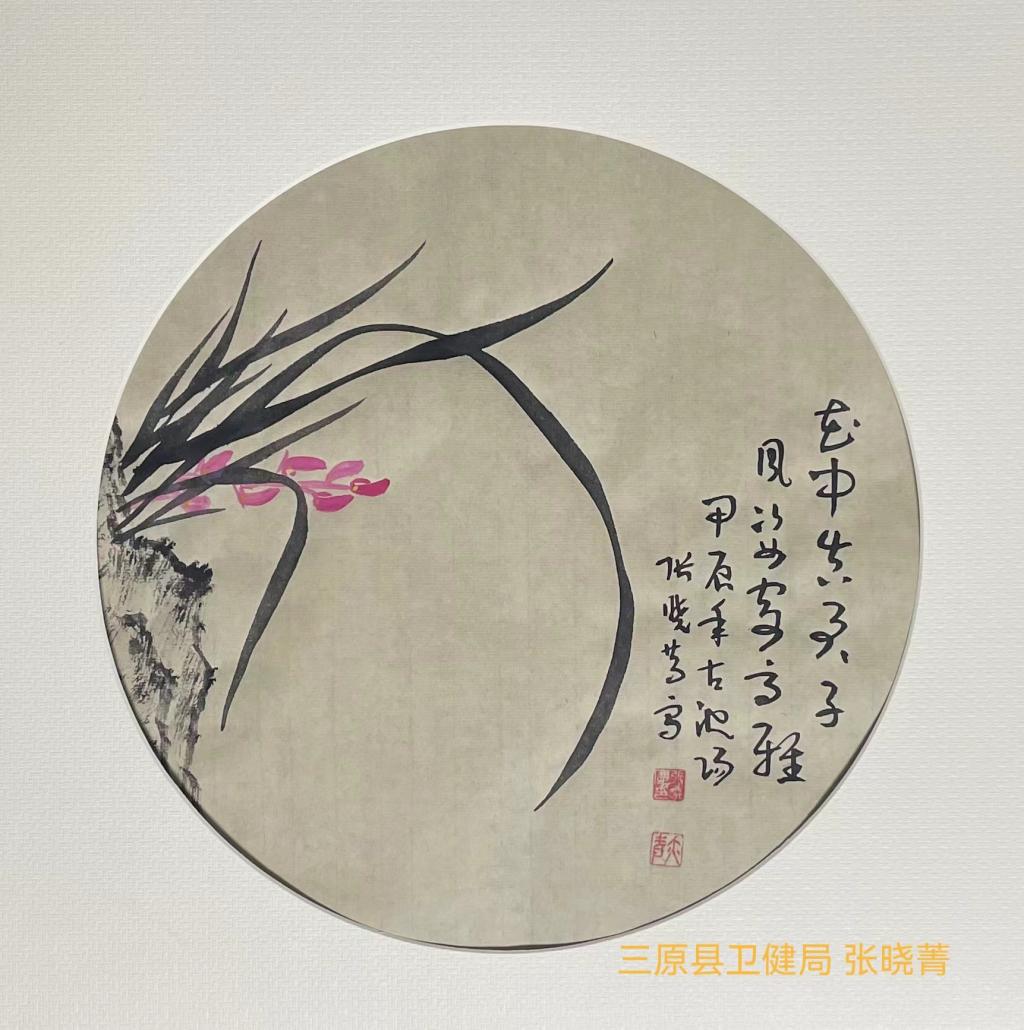 花中真君子
风姿寄高雅
甲辰年古池阳
张晓菁写
三原县卫健局 张晓菁